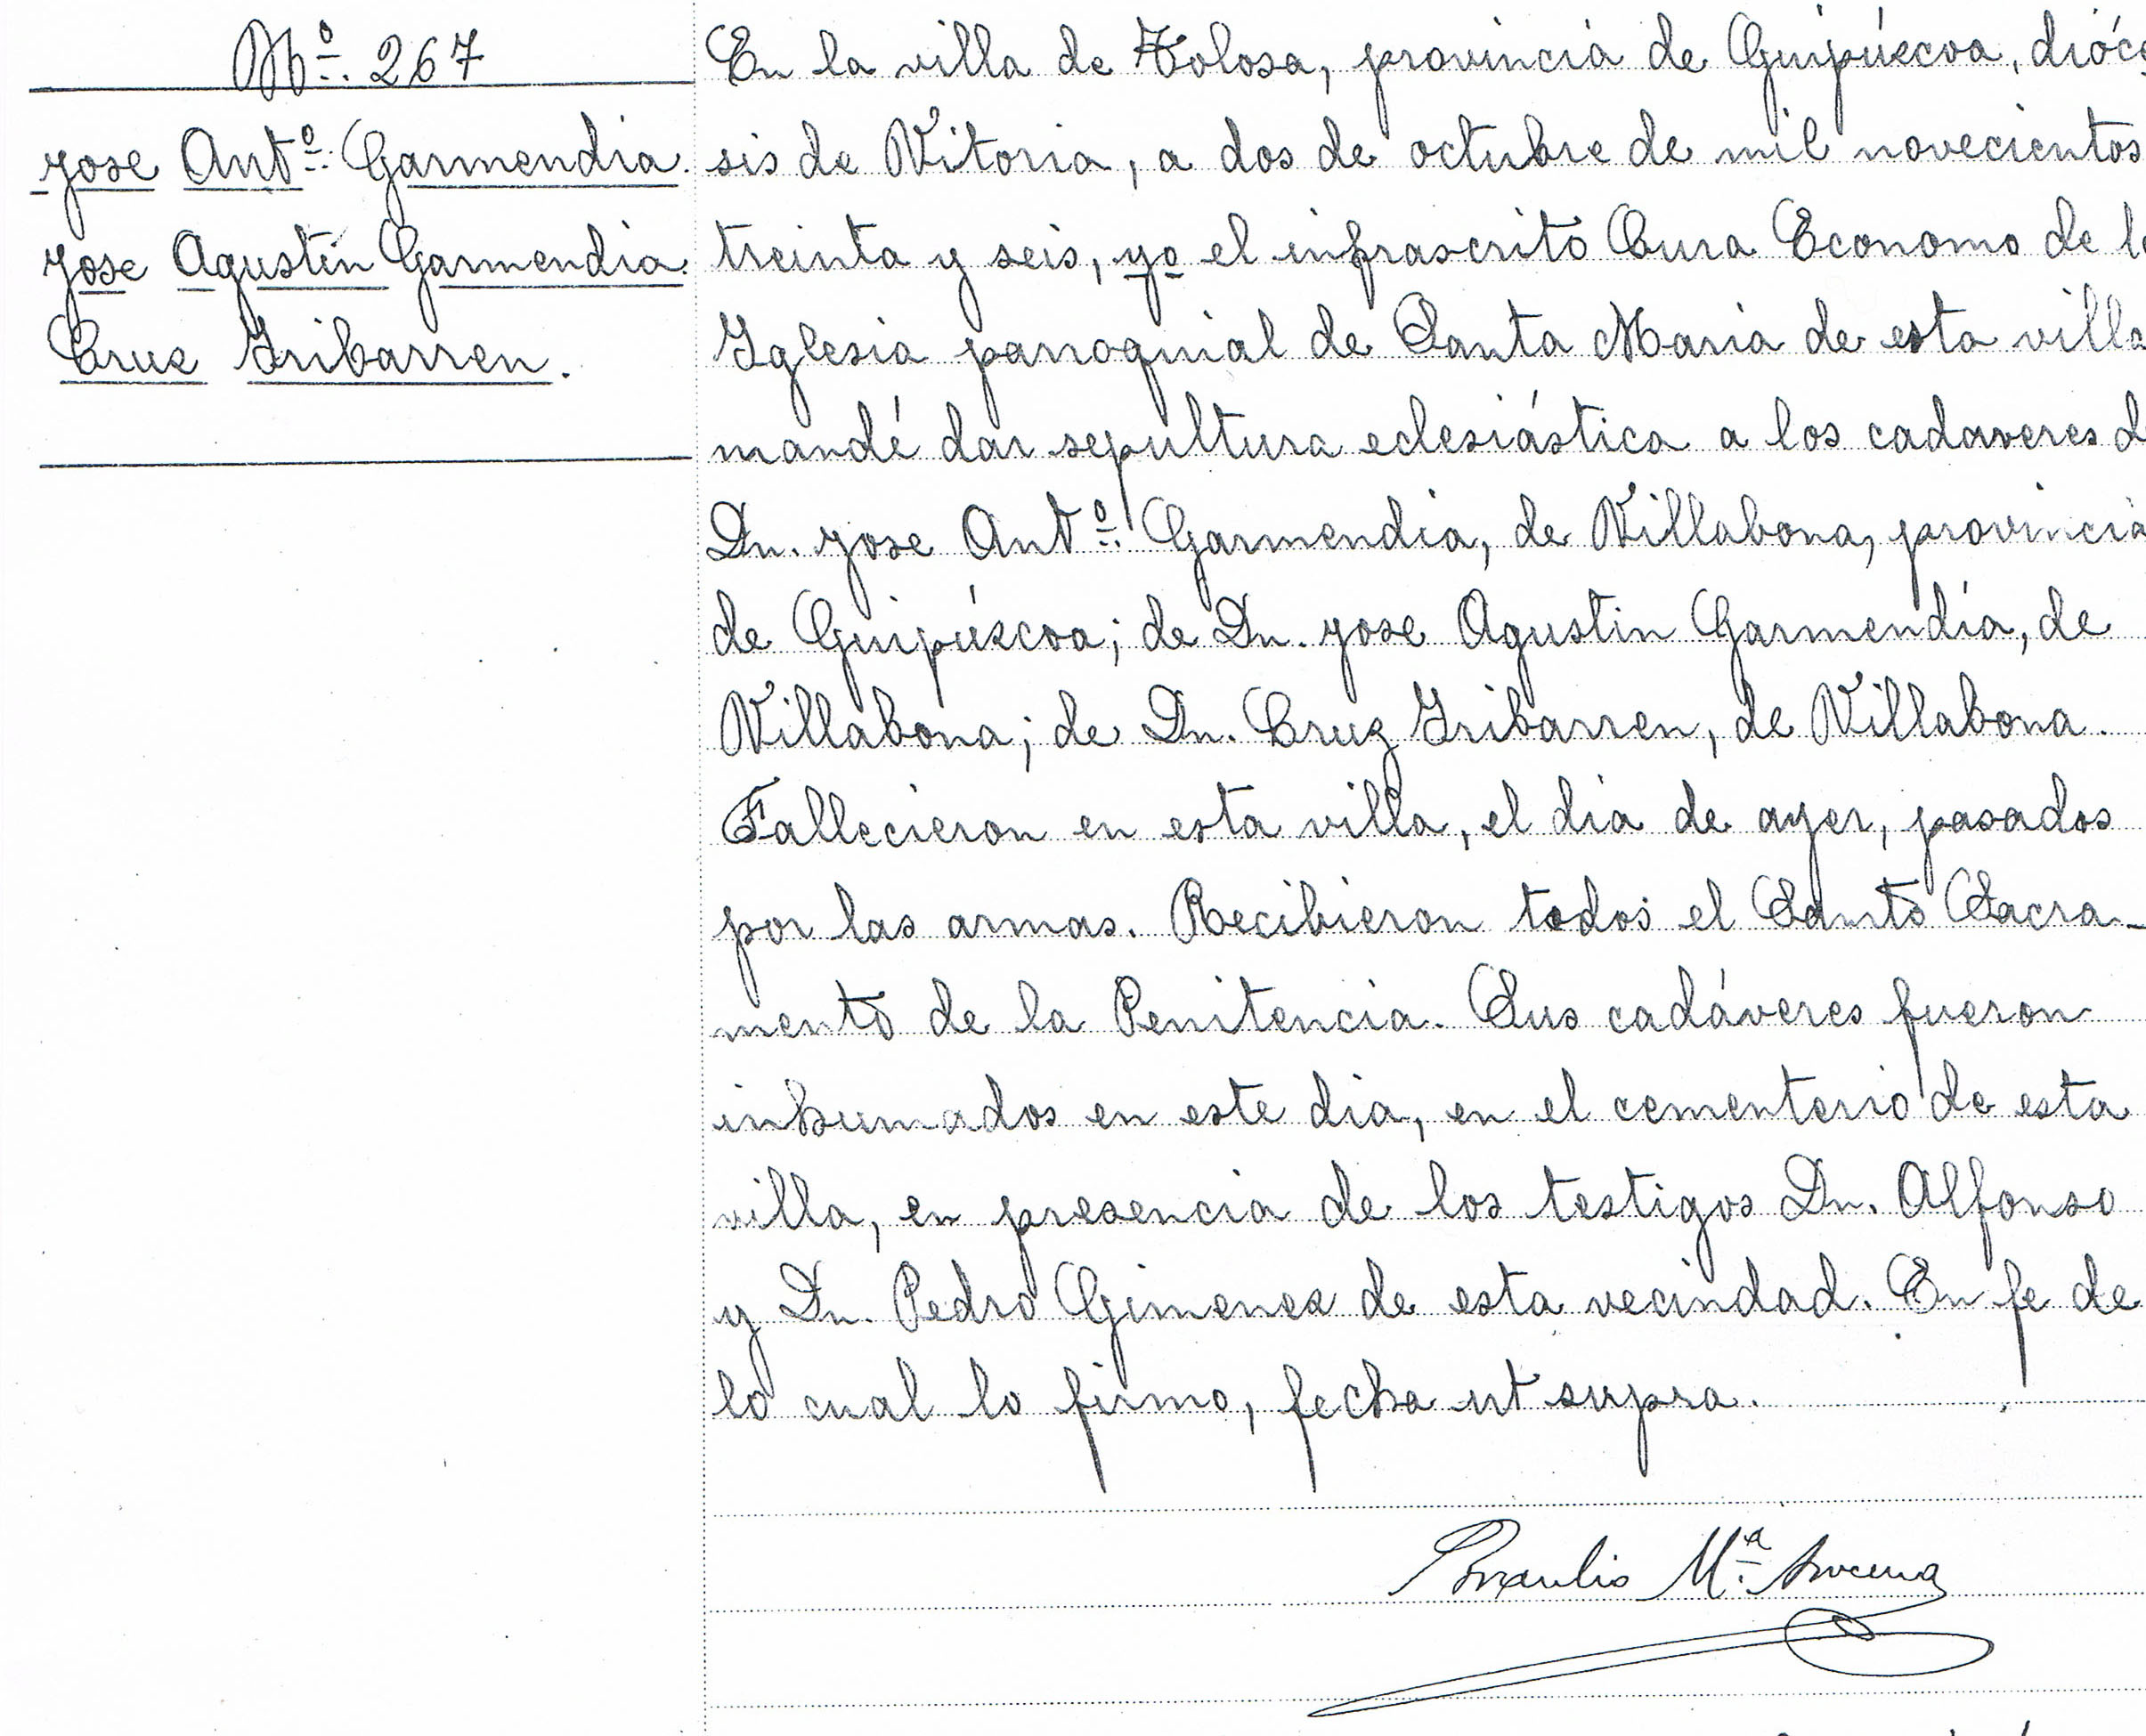 Nº 267
Jose Antº Garmendia.
Jose Agustín Garmendia.
Cruz Iribarren.
En la villa de Tolosa, provincia de Guipúzcoa, dióce
sis de Vitoria, a dos de octubre de mil novecientos
treinta y seis, yo el infrascrito Cura Economo de l
Iglesia parroquial de Santa Maria de esta villa
mandé dar sepultura eclesiástica a los cadaveres d
Dn. Jose Antº Garmendia, de Villabona, provincia
de Guipúzcoa; de Dn. Jose Agustin Garmendía, de
Villabona; de Dn. Cruz Iribarren, de Villabona.
Fallecieron en esta villa, el dia de ayer, pasados
por las armas. Recibieron todos el Santo Sacra-
mento de la Penitencia. Sus cadáveres fueron
inhumados en este dia, en el cementerio de esta
villa, en presencia de los testigos Dn. Alfonso
y Dn. Pedro Gimenez de esta vecindad. En fe de
lo cual lo firmo, fecha ut supra.
Braulio Mª